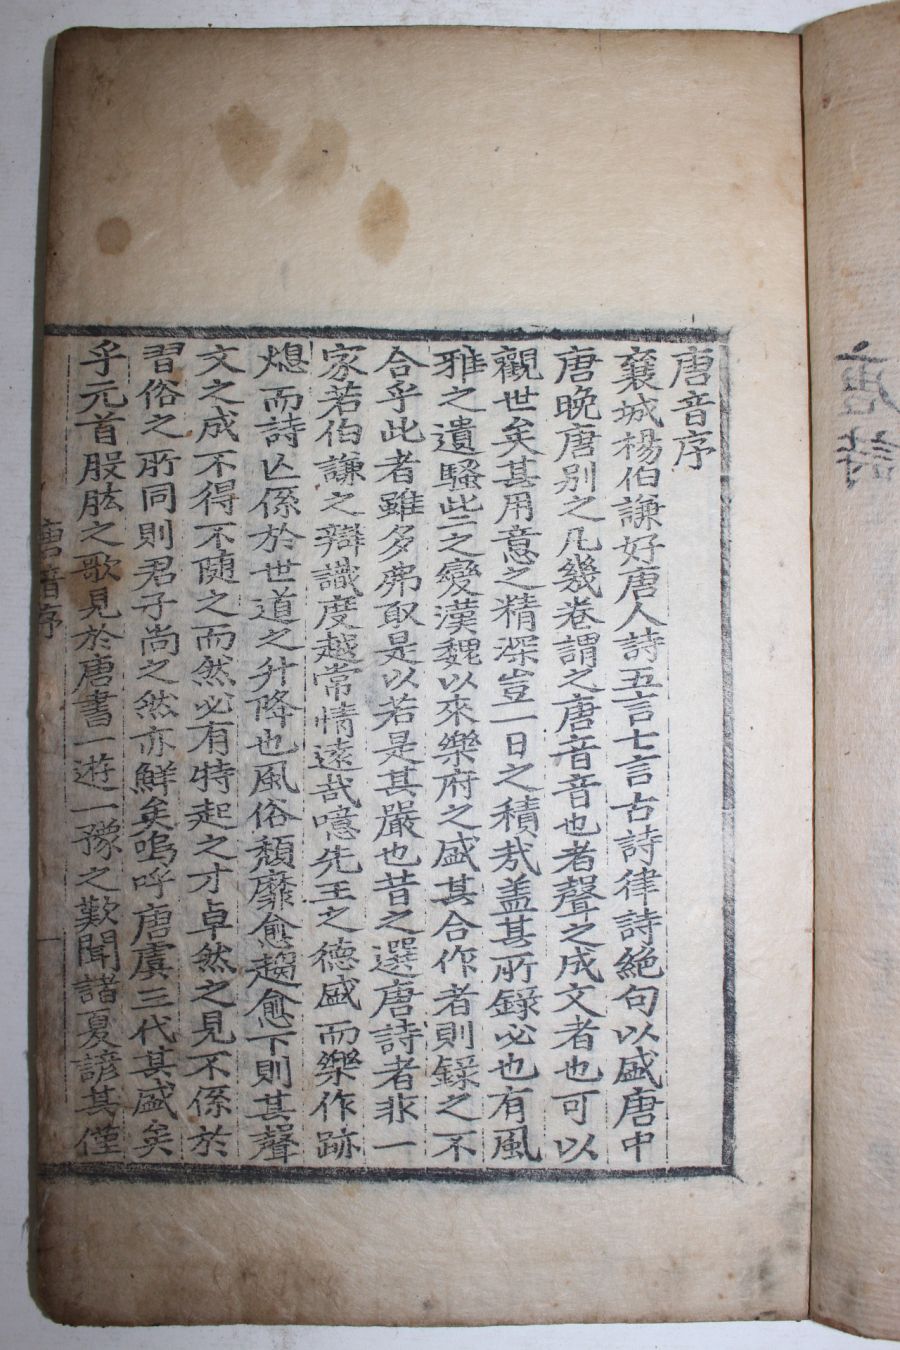 唐音序
襄城楊伯謙好唐人詩五言七言古詩律詩絶句以盛唐中
唐晚唐别之凡幾卷謂之唐音音也者聲之成文者也可以
觀世矣其用意之精深豈一日之積㢤盖其所録必也有風
雅之遺騷些之變漢魏以來樂府之盛其合作者則録之不
合乎此者雖多弗取是以若是其嚴也昔之選唐詩者非一
家若伯謙之辯識度越常情遠哉噫先王之德盛而樂作跡
熄而詩亾係於世道之升降也風俗頽靡愈趨愈下則其聲
文之成不得不随之而然必有特起之才卓然之見不係於
習俗之所同則君子尚之然亦鮮矣嗚呼唐虞三代其盛矣
乎元首股肱之歌見於唐書一遊一豫之歎聞諸夏諺其僅
唐音序
一
唐詩